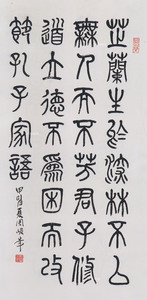 芷蘭生於深林不以
無人而不芳君子修
道立德不爲困而改
節孔子家語